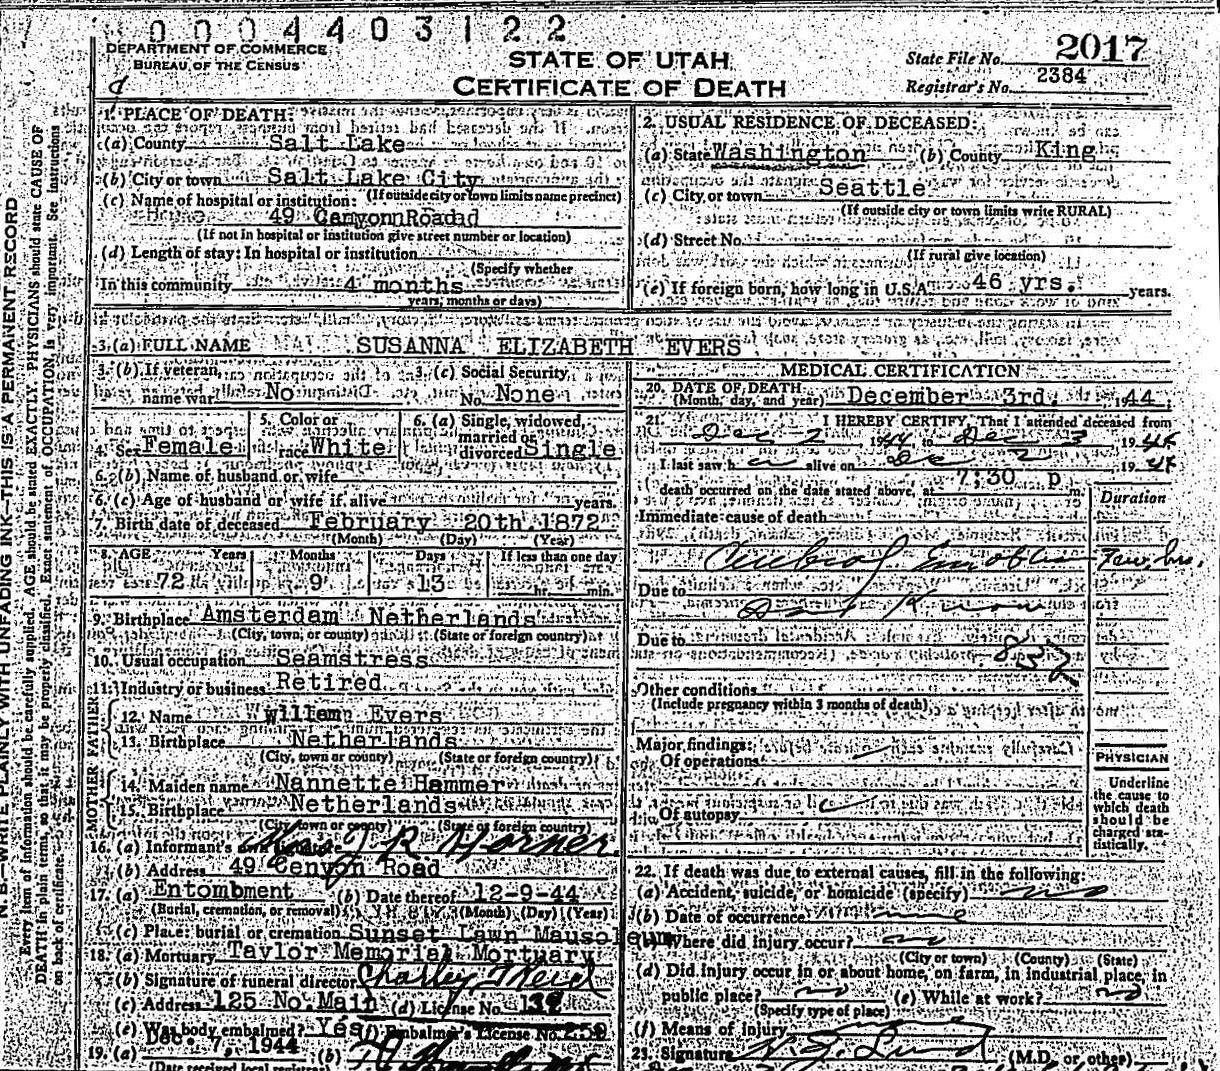 0004403122
DEPARTMENT OF COMMERCE
BUREAU OF THE CENSUS
STATE OF UTAH
CERTIFICATE OF DEATH
State File No. 2017
Registrar's No. 2384
N. B.—WRITE PLAINLY WITH UNFADING INK—THIS IS A PERMANENT RECORD
Every item of information should be carefully supplied. AGE should be stated EXACTLY. PHYSICIANS should state CAUSE OF
DEATH in plain terms, so that it may be properly classified. Exact statement of OCCUPATION is very important. See instructions
on back of certificate.
1. PLACE OF DEATH:
(a) County Salt Lake
(b) City or town Salt Lake City
(If outside city or town limits name precinct)
(c) Name of hospital or institution:
49 Canyonn Roadd
(If not in hospital or institution give street number or location)
(d) Length of stay: In hospital or institution
(Specify whether
In this community 4 months
years, months or days)
2. USUAL RESIDENCE OF DECEASED:
(a) State Washington (b) County King
(c) City or town Seattle
(If outside city or town limits write RURAL)
(d) Street No.
(If rural give location)
(e) If foreign born, how long in U.S.A. 46 yrs. years.
3. (a) FULL NAME SUSANNA ELIZABETH EVERS
3. (b) If veteran, name war No
3. (c) Social Security No. None
4. Sex Female
5. Color or race White
6. (a) Single, widowed, married or divorced Single
6. (b) Name of husband or wife
6. (c) Age of husband or wife if alive years.
7. Birth date of deceased February 20th 1872
(Month) (Day) (Year)
8. AGE Years Months Days If less than one day
72 9 13 hr. min.
9. Birthplace Amsterdam Netherlands
(City, town, or county) (State or foreign country)
10. Usual occupation Seamstress
11. Industry or business Retired
FATHER
12. Name William Evers
13. Birthplace Netherlands
(City, town or county) (State or foreign country)
MOTHER
14. Maiden name Nannette Hammer
15. Birthplace Netherlands
(City town or county) (State or foreign country)
16. (a) Informant's own signature J R Horner
(b) Address 49 Cenyon Road
17. (a) Entombment (b) Date thereof 12-9-44
(Burial, cremation, or removal) (Month) (Day) (Year)
(c) Place: burial or cremation Sunset Lawn Mausoleum
18. (a) Mortuary Taylor Memorial Mortuary
(b) Signature of funeral director Charley
(c) Address 125 No Main (d) License No.
(e) Was body embalmed? Yes (f) Embalmer's License No. 250
19. (a) Dec. 7, 1944 (b)
(Date received local registrar)
MEDICAL CERTIFICATION
20. DATE OF DEATH
(Month, day, and year) December 3rd. 1944
21. I HEREBY CERTIFY, That I attended deceased from
Dec 2 1944 to Dec 3 1944
I last saw h alive on Dec 2 1944
death occurred on the date stated above, at 7:30 p m.
Duration
Immediate cause of death
Cerebral Embolism Few hrs.
Due to
Due to
832
Other conditions
(Include pregnancy within 3 months of death)
Major findings:
Of operations
Of autopsy
PHYSICIAN
Underline
the cause to
which death
should be
charged sta-
tistically.
22. If death was due to external causes, fill in the following:
(a) Accident, suicide or homicide (specify) no
(b) Date of occurrence
(c) Where did injury occur? no
(City or town) (County) (State)
(d) Did injury occur in or about home, on farm, in industrial place, in
public place? no (e) While at work? no
(Specify type of place)
(f) Means of injury
23. Signature Lund (M.D. or other)